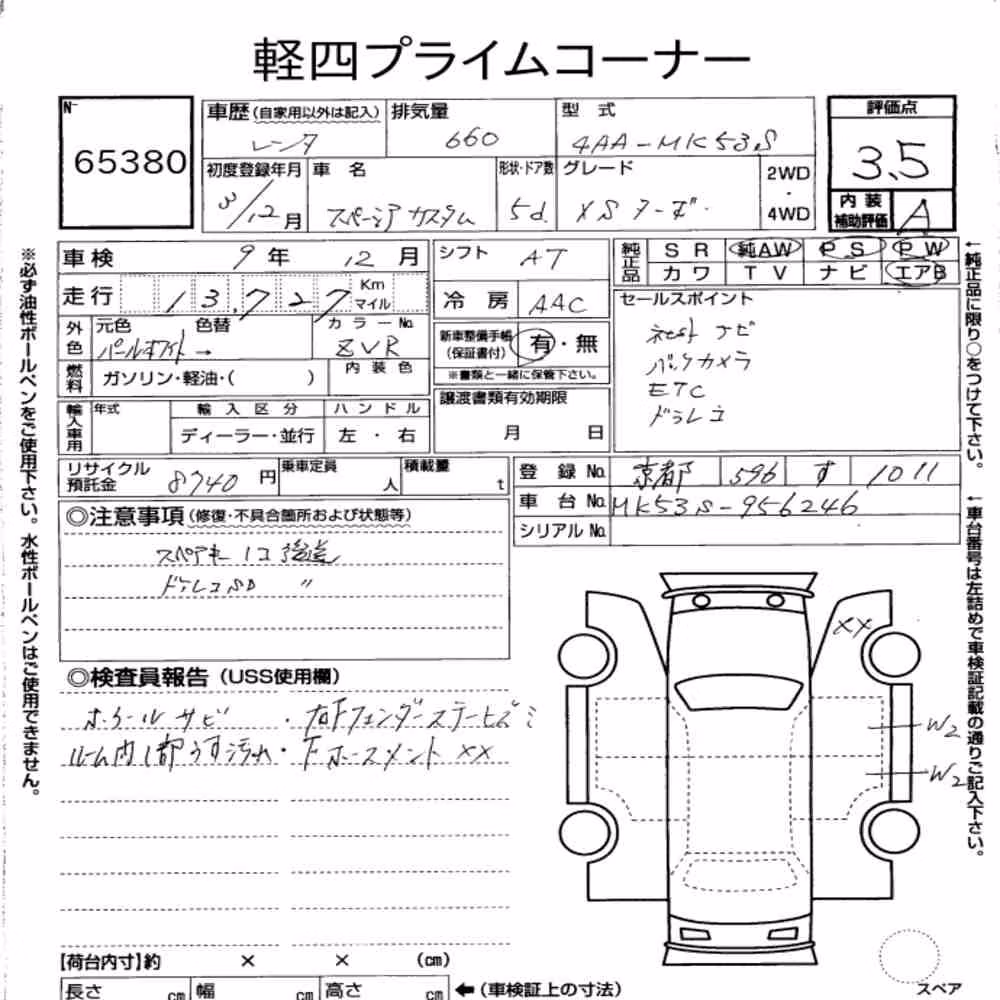 軽四プライムコーナー
№ 65380
車歴(自家用以外は記入) レンタ
排気量 660
型式 4AA-MK53S
評価点 3.5
初度登録年月 3/12月
車名 スペーシアカスタム
形状・ドア数 5d.
グレード XSターボ.
2WD・4WD
内装補助評価 A
車検 9年 12月
シフト AT
純正品 SR 純AW PS PW
カワ TV ナビ エアB
走行 13,727 Km マイル
冷房 AAC
セールスポイント
ネクスト ナビ
バックカメラ
ETC
ドラレコ
外色 元色 パールホワイト→ 色替
カラーNo. ZVR
新車整備手帳(保証書付) 有・無
※書類と一緒に保管下さい。
燃料 ガソリン・軽油・( )
内装色
譲渡書類有効期限
月 日
輸入車用 年式 輸入区分 ハンドル
ディーラー・並行 左・右
リサイクル預託金 8740円
乗車定員 人
積載量 t
登録No. 京都 596 す 1011
車台No. MK53S-956246
シリアルNo.
◎注意事項(修復・不具合箇所および状態等)
スペアキー1コ後送
ドラレコSD 〃
◎検査員報告(USS使用欄)
ホイールサビ ・右Fフェンダーステーヒズミ
ルーム内1部うす汚れ・FホースメントXX
XX
W2
W2
【荷台内寸】約 × × (cm)
長さ cm 幅 cm 高さ cm ←(車検証上の寸法)
スペア
※必ず油性ボールペンをご使用下さい。水性ボールペンはご使用できません。
←純正品に限り○をつけて下さい。
←車台番号は左詰めで車検証記載の通りご記入下さい。